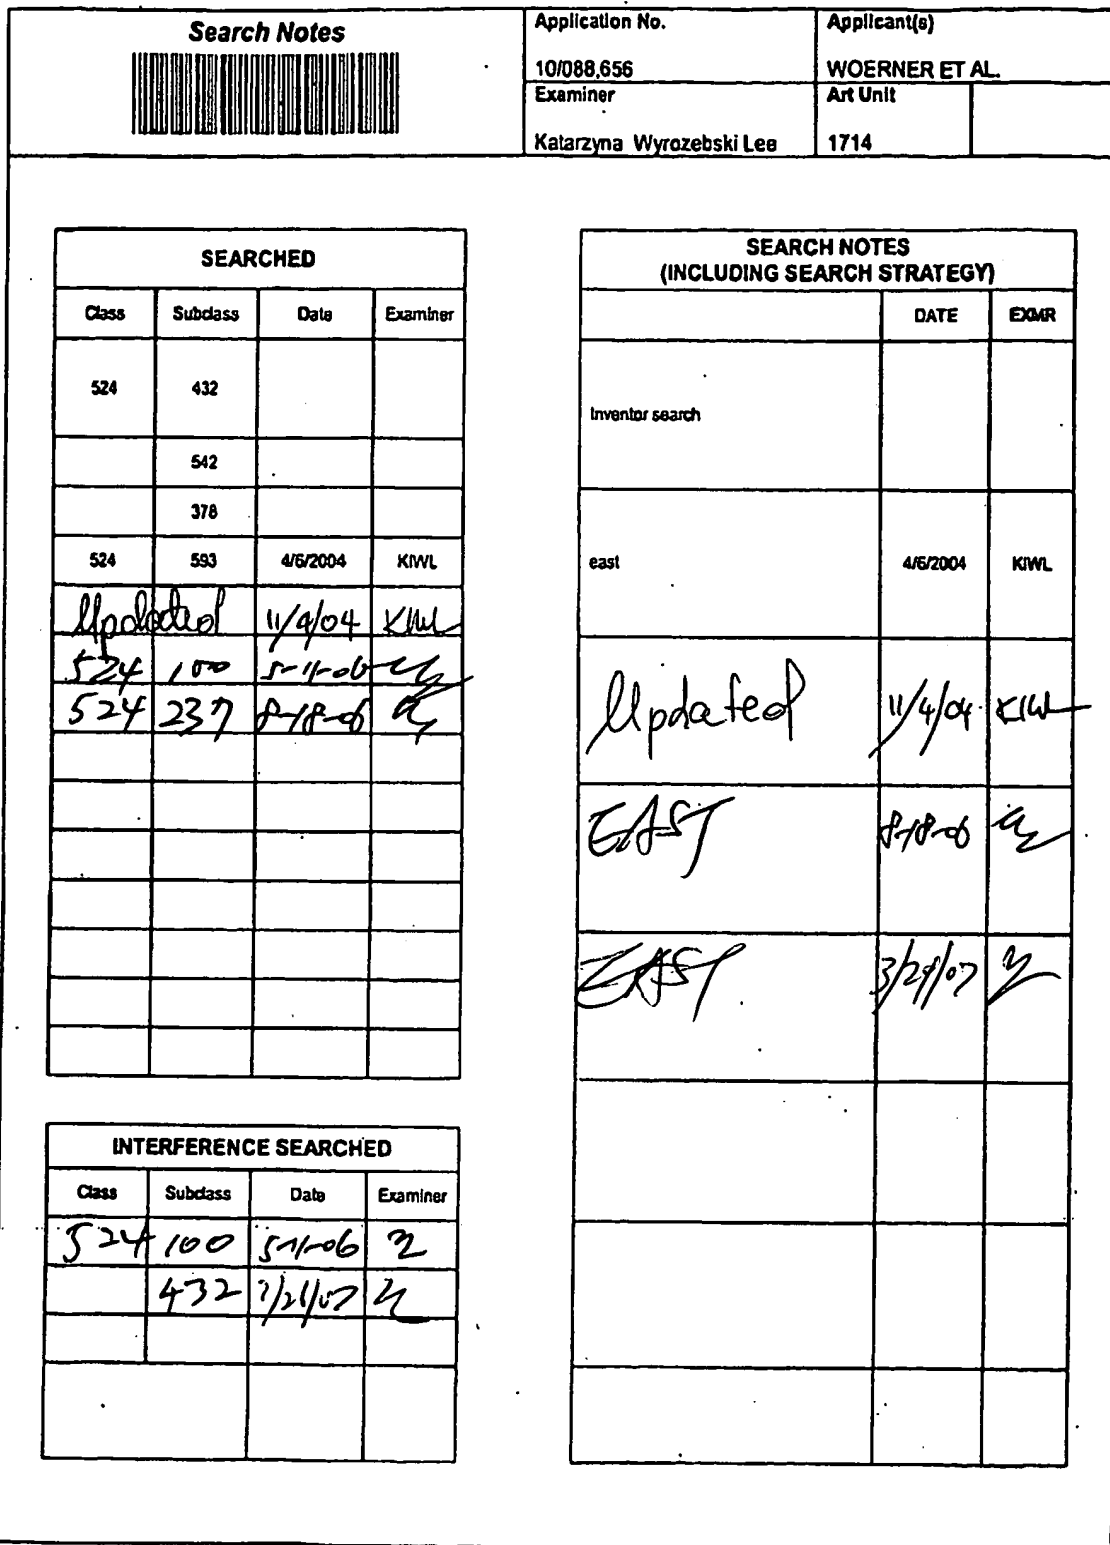 Search Notes
Application No.
10/088,656
Applicant(s)
WOERNER ET AL.
Examiner
Katarzyna Wyrozebski Lee
Art Unit
1714
SEARCHED
Class Subclass Date Examiner
524 432
542
378
524 593 4/6/2004 KIWL
Updated 11/4/04 KIWL
524 100 5-11-06
524 237 8-18-06
INTERFERENCE SEARCHED
Class Subclass Date Examiner
524 100 5-11-06
432
SEARCH NOTES
(INCLUDING SEARCH STRATEGY)
DATE EXMR
Inventor search
east 4/6/2004 KIWL
Updated 11/4/04 KIWL
EAST 8-18-06
EAST